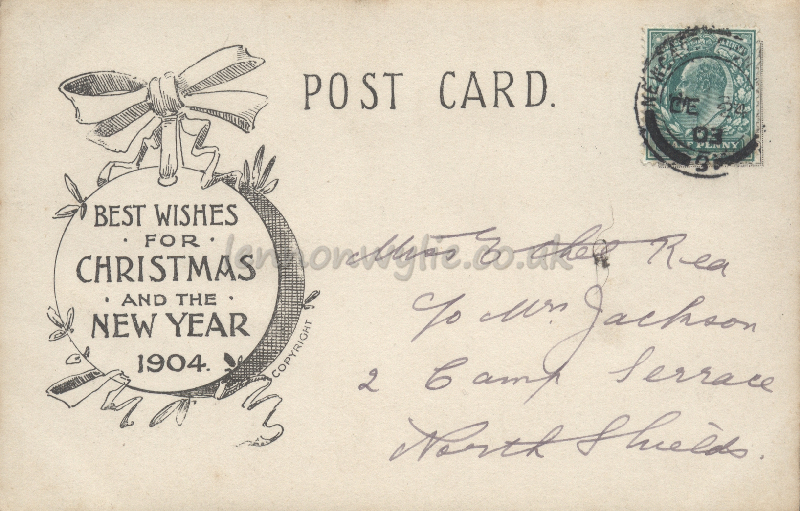 POST CARD.
BEST WISHES
· FOR ·
CHRISTMAS
· AND THE ·
NEW YEAR
1904.
COPYRIGHT
DE 24
03
PENNY
lennonwylie.co.uk
Miss Ethel Rea
c/o Mrs Jackson
2 Camp Terrace
North Shields.